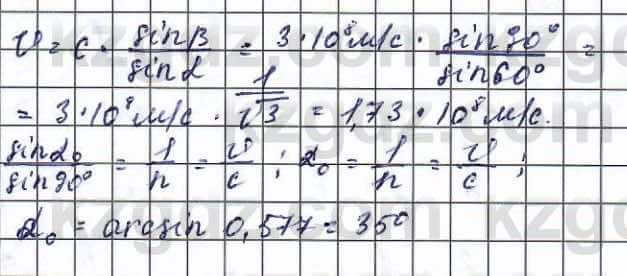 υ = c · sinβ/sinα = 3·10⁸ м/с · sin 30°/sin 60° =
= 3·10⁸ м/с · 1/√3 = 1,73 · 10⁸ м/с.
sinα₀/sin 90° = 1/n = υ/c ; α₀ = 1/n = υ/c ;
α₀ = arcsin 0,577 = 35°